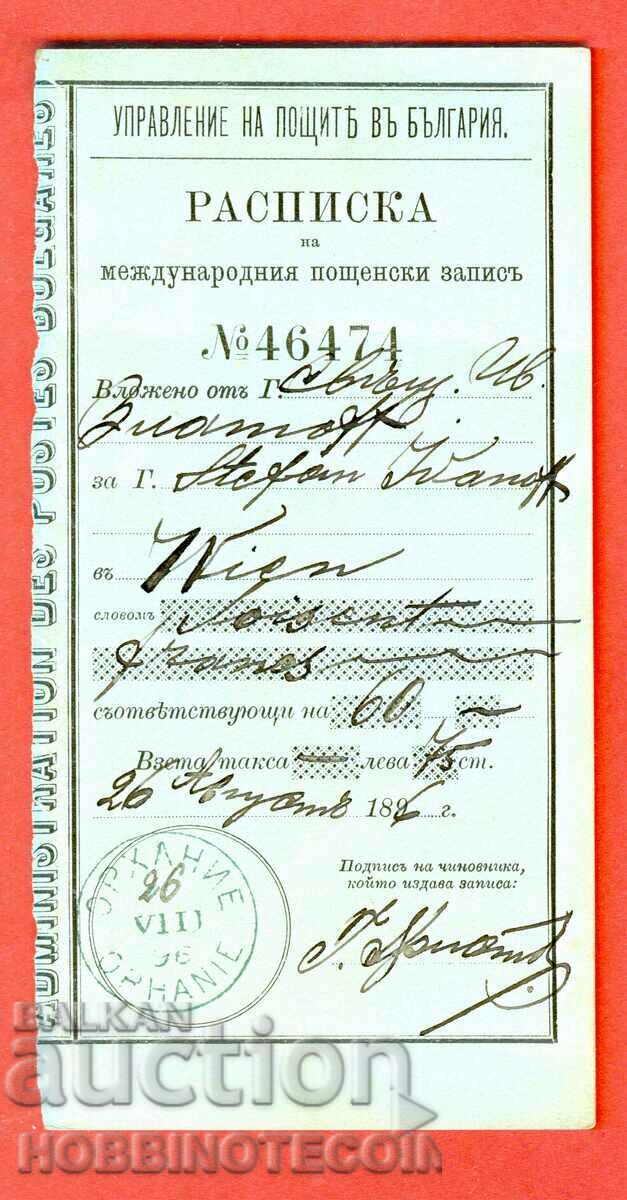 УПРАВЛЕНИЕ НА ПОЩИТѢ ВЪ БЪЛГАРИЯ.
РАСПИСКА
на
международния пощенски записъ
№ 46474
Вложено отъ Г. Свѣщ. Ив.
за Г. Stefan Ivanoff
въ Wien
словомъ
francs
съответствующи на 60 —
Взета такса — лева 75 ст.
26 Августъ 1896 г.
Подписъ на чиновника,
който издава записа:
ОРХАНИЕ
26
VIII
96
ORHANIE
ADMINISTRATION DES POSTES BULGARES
BALKAN
auction
HOBBINOTECOIN